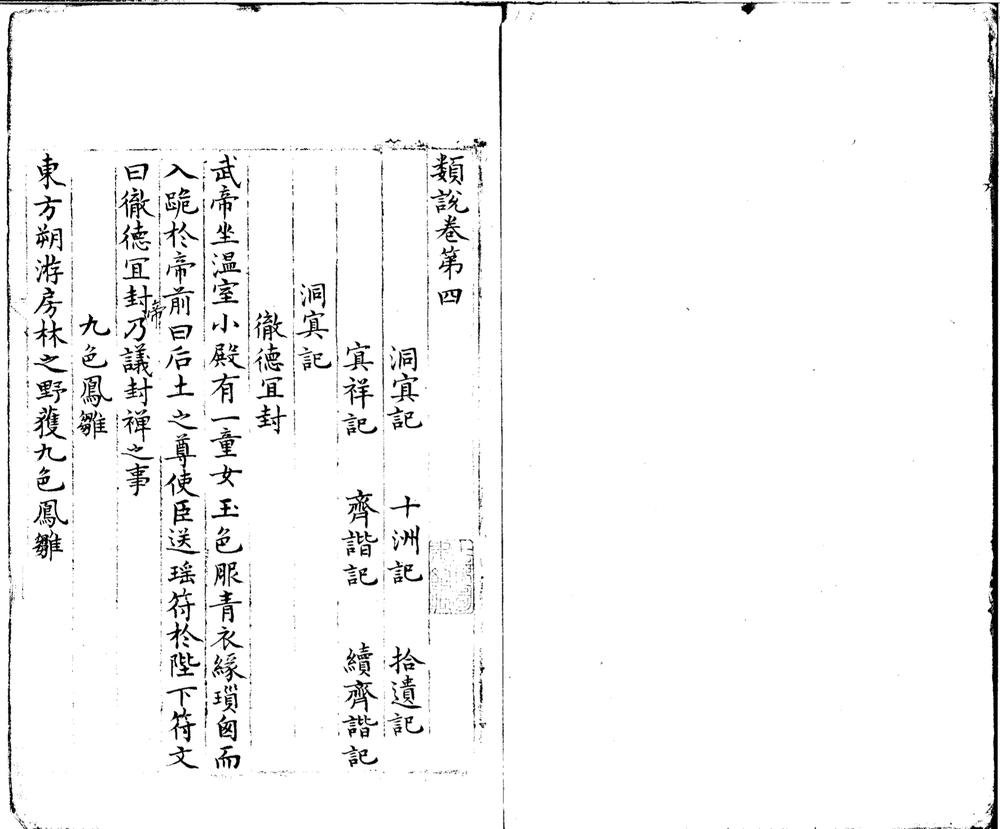 類說卷第四
洞㝠記 十洲記 拾遺記
㝠祥記 齊諧記 續齊諧記
洞㝠記
徹德冝封
武帝坐温室小殿有一童女玉色服青衣緣瑣囪而
入跪於帝前曰后土之尊使臣送瑶符於陛下符文
曰徹德冝封帝乃議封禅之事
九色鳳雛
東方朔游房林之野獲九色鳳雛